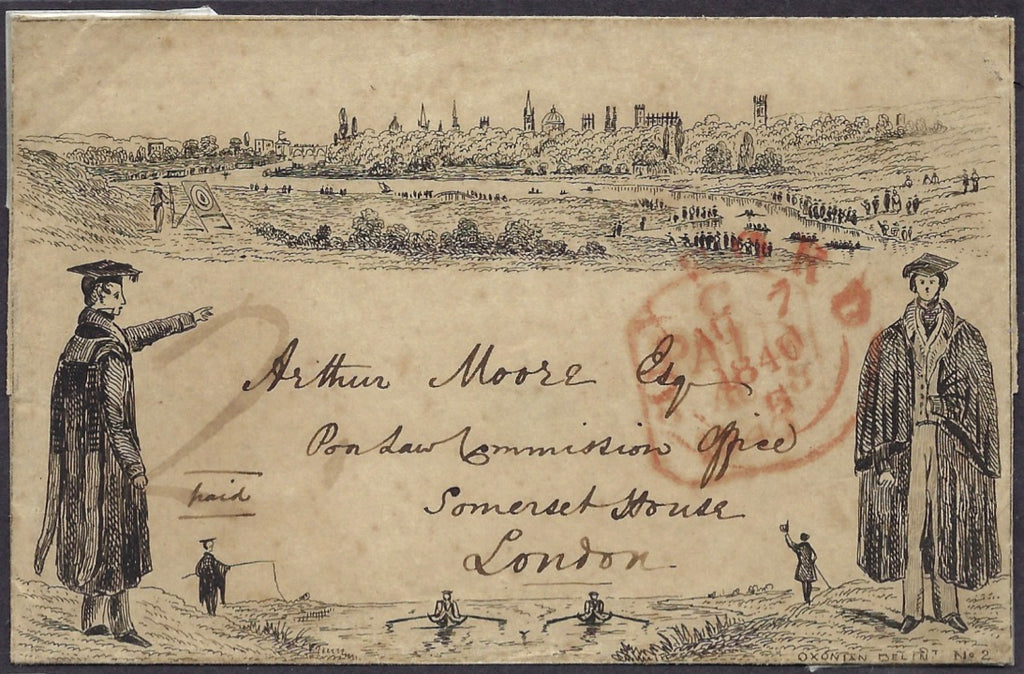 Arthur Moore Esq
Poor Law Commission Office
Somerset House
London
paid
2
C
7
AU
1840
OXONIAN DELINT No 2